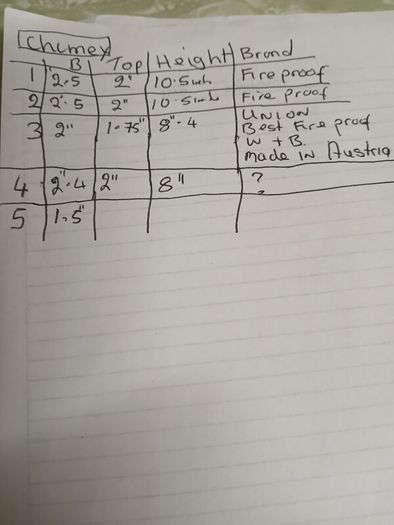 Chimey
B Top Height Brand
1 2.5 2" 10.5inch Fire proof
2 2".5 2" 10.5inch Fire proof
3 2" 1.75" 8".4 UNION
Best Fire proof
W + B.
Made IN Austria
4 2".4 2" 8" ?
5 1.5"